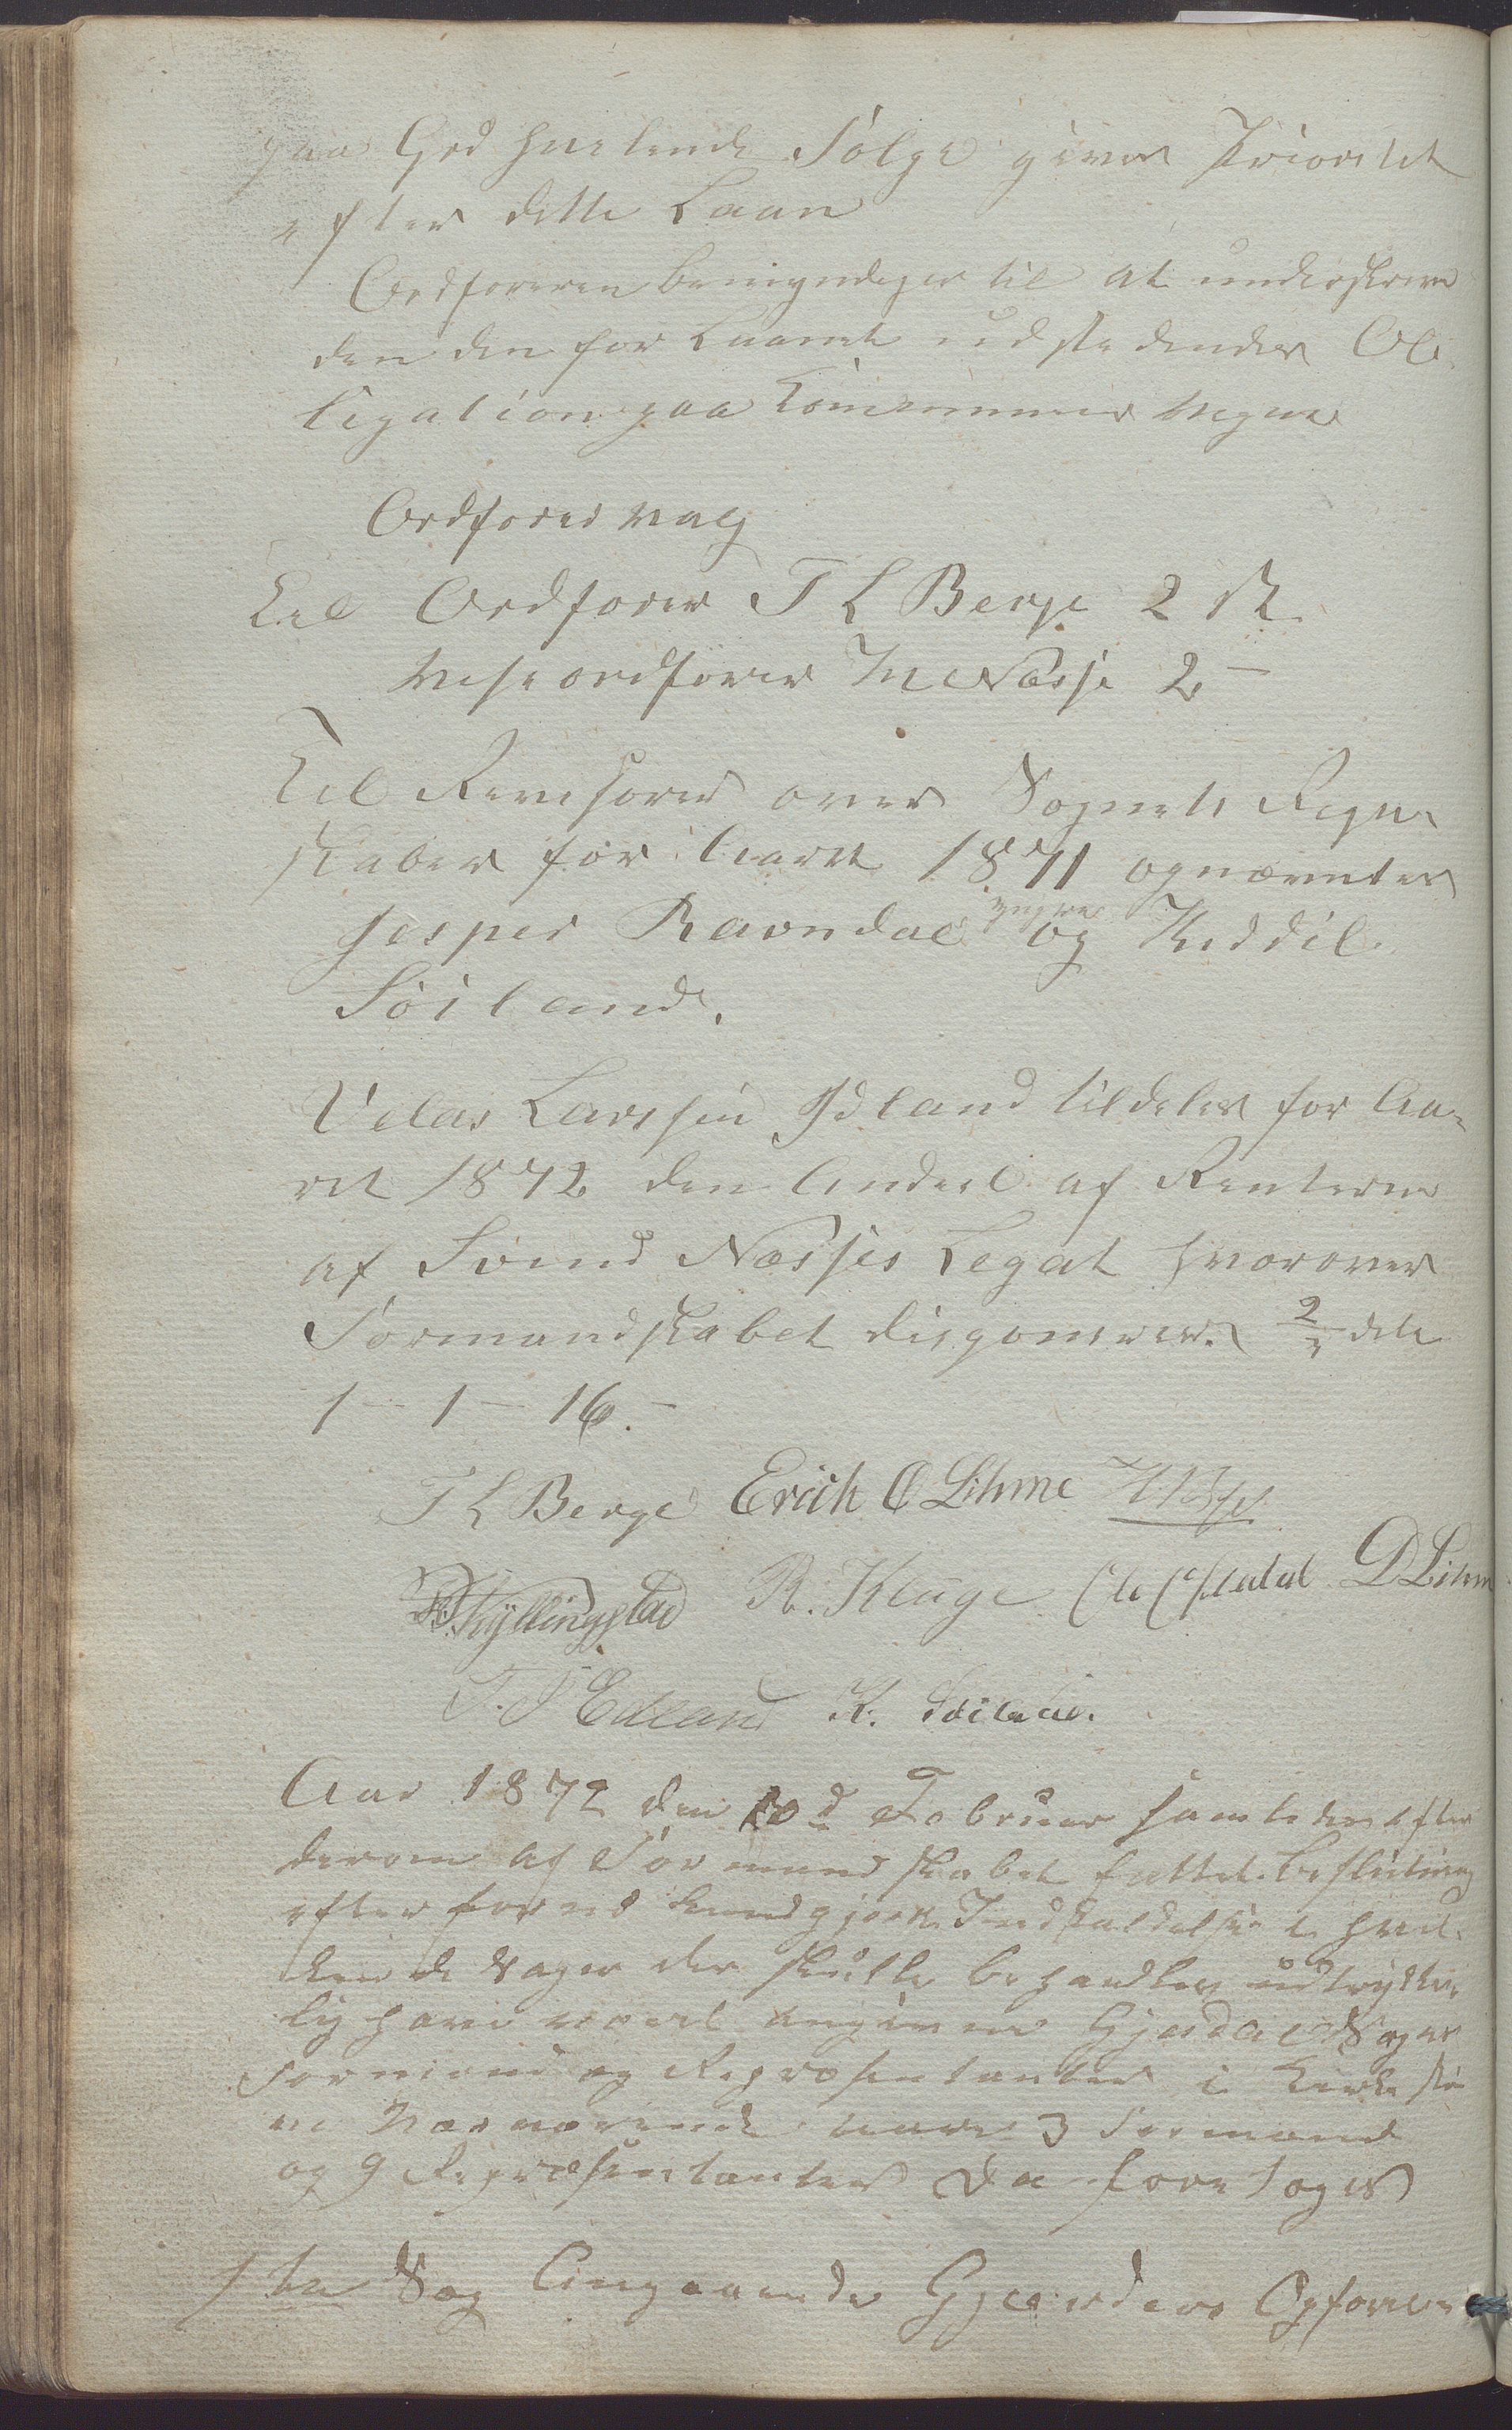 paa hvelende Følge giver Prioritet
efter dette Laan
Ordføreren bemyndiges til at underskrive
den den for Laanet udstedendes Ob
ligation paa Kommunens Vegne
Ordførervalg
til Ordfører T L Berge 2 St
Viseordfører Næsse 2 -
Til Revisorer over Sognets Regn-
skaber for Aaret 1871 opnævntes
Jesper Ravndal yngre og Kiddil
Søiland.
Velas Larssen Edland tildeles for Aa-
ret 1872 den Andeel af Renterne
af Svend Næsses Legat hvorover
Formandskabet disponerer. 2/3 dele
1 - 1 - 16. -
T L Berge Erich O Lihme
Kyllingstad R. Kluge D Lihm
T. S Edland K. Søiland.
Aar 1872 den 10d Februar samledes efter
derom af Formandskabet fattet Beslutning
efter forud kundgjort Indkaldelse i hvil-
ken de Sager der skulle behandles udtrykke-
lig have været angivne Gjesdal Sogns
Formænd og Repræsentanter i Kirkestu
en Nærværende vare 3 Formænd
og 9 Repræsentanter Da foretoges
1ste Sag Angaaende Gjærders Opførelse